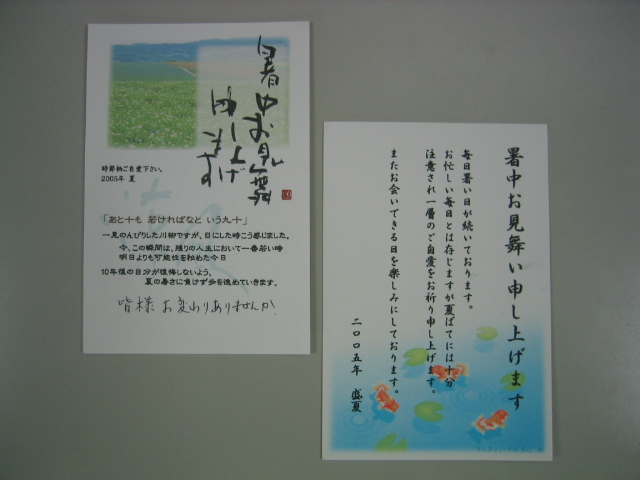 暑中お見舞
申し上げ
ます
時節柄ご自愛下さい。
2005年 夏
「あと十も 若ければなと いう九十」
一見のんびりした川柳ですが、目にした時こう感じました。
今、この瞬間は、残りの人生において一番若い時
明日よりも可能性を秘めた今日
10年後の自分が後悔しないよう、
夏の暑さに負けず歩を進めていきます。
皆様 お変わりありませんか?
暑中お見舞い申し上げます
毎日暑い日が続いております。
お忙しい毎日とは存じますが夏ばてには十分
注意され一層のご自愛をお祈り申し上げます。
またお会いできる日を楽しみにしております。
二〇〇五年 盛夏